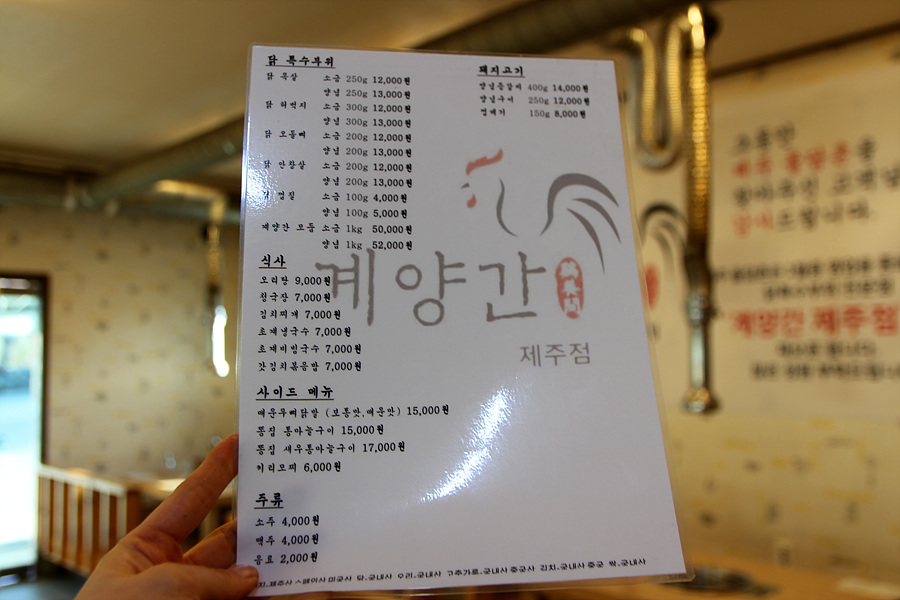 닭 특수부위
닭 목살 소금 250g 12,000원
양념 250g 13,000원
닭 허벅지 소금 300g 12,000원
양념 300g 13,000원
닭 오돌뼈 소금 200g 12,000원
양념 200g 13,000원
닭 안창살 소금 200g 12,000원
양념 200g 13,000원
껍질 소금 100g 4,000원
양념 100g 5,000원
계양간 모듬 소금 1kg 50,000원
양념 1kg 52,000원
돼지고기
400g 14,000원
양념구이 250g 12,000원
껍데기 150g 8,000원
계양간
제주점
식사
오리탕 9,000원
청국장 7,000원
김치찌개 7,000원
초계냉국수 7,000원
초계비빔국수 7,000원
갓김치볶음밥 7,000원
사이드 메뉴
매운무뼈닭발 (보통맛,매운맛) 15,000원
똥집 통마늘구이 15,000원
똥집 새우통마늘구이 17,000원
6,000원
주류
소주 4,000원
맥주 4,000원
음료 2,000원
지-제주산 스페인산 미국산 닭-국내산 오리-국내산 고추가루-국내산 중국산 김치-국내산 중국 쌀-국내산
계양간 제주점